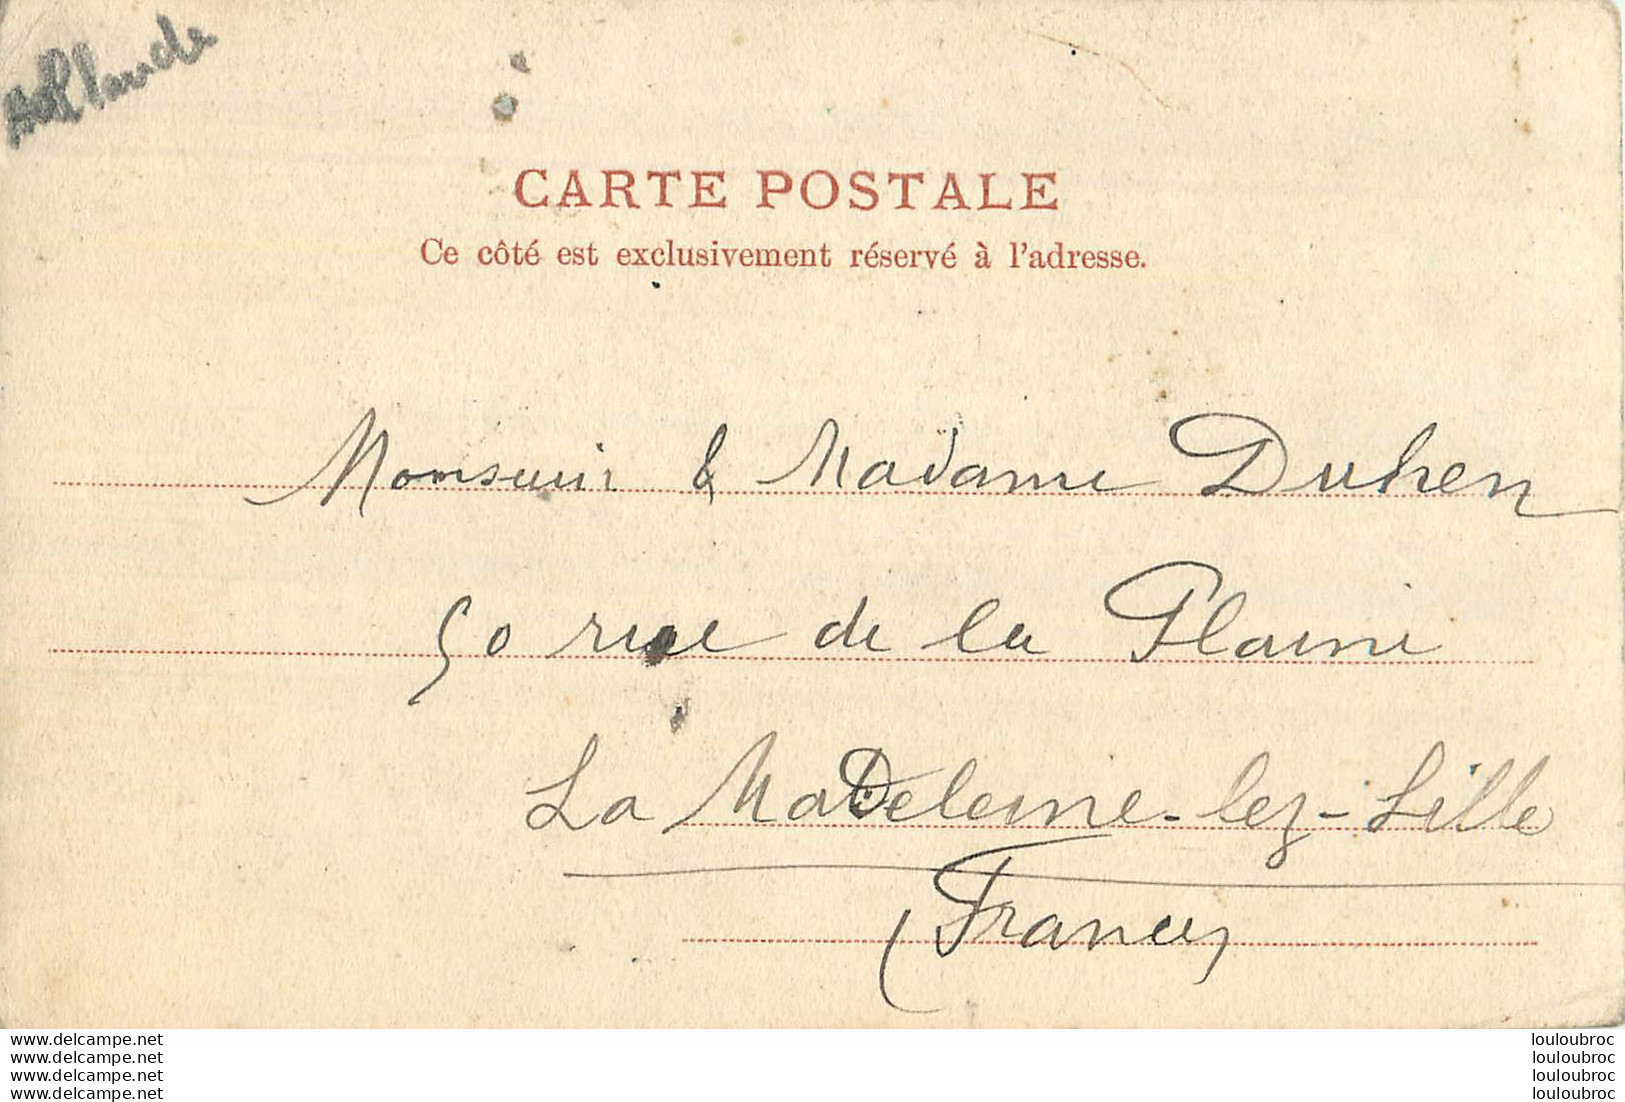 Hollande
CARTE POSTALE
Ce côté est exclusivement réservé à l'adresse.
Monsieur & Madame Duhen
50 rue de la Plaine
La Madeleine-lez-Lille
(France)
www.delcampe.net louloubroc
www.delcampe.net louloubroc
www.delcampe.net louloubroc
www.delcampe.net louloubroc